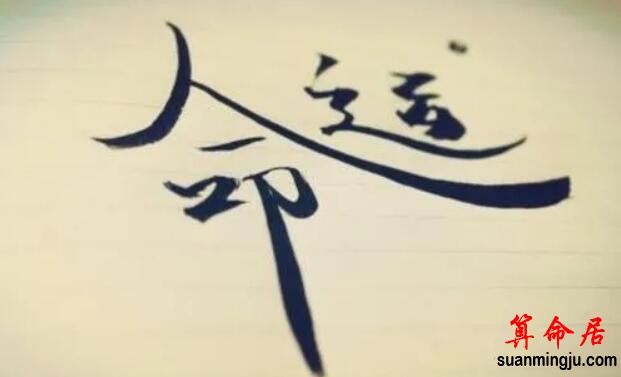 命运
算命居
suanmingju.com